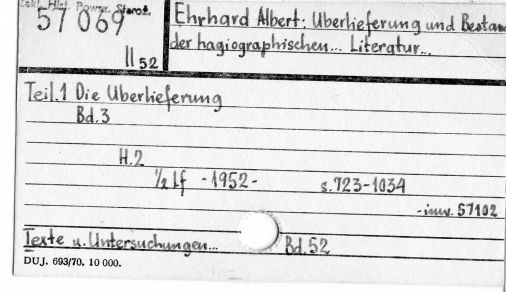 Zakł. Hist. Powsz. Staroż.
57 069
II 52
Ehrhard Albert: Uberlieferung und Bestan
der hagiographischen... Literatur...
Teil.1 Die Uberlieferung
Bd.3
H.2
½ lf -1952- s.723-1034
-inw. 57102
Texte u. Untersuchungen... Bd.52
DUJ. 693/70. 10 000.